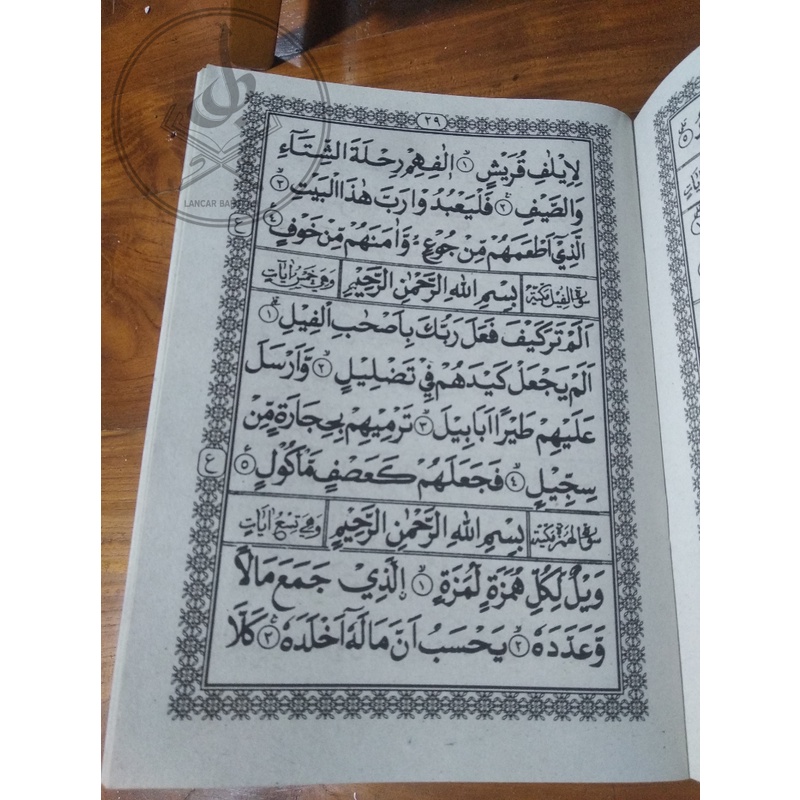 LANCAR
٢٩
لِاِيْلٰفِ قُرَيْشٍ ۝١ اٖلٰفِهِمْ رِحْلَةَ الشِّتَآءِ
وَالصَّيْفِ ۝٢ فَلْيَعْبُدُوْا رَبَّ هٰذَا الْبَيْتِ ۝٣
الَّذِيْٓ اَطْعَمَهُمْ مِّنْ جُوْعٍ ۙ وَّاٰمَنَهُمْ مِّنْ خَوْفٍ ۝٤
ع
سورة الفيل مكية بِسْمِ اللهِ الرَّحْمٰنِ الرَّحِيْمِ وهي خمس اٰيات
اَلَمْ تَرَ كَيْفَ فَعَلَ رَبُّكَ بِاَصْحٰبِ الْفِيْلِ ۝١
اَلَمْ يَجْعَلْ كَيْدَهُمْ فِيْ تَضْلِيْلٍ ۝٢ وَّاَرْسَلَ
عَلَيْهِمْ طَيْرًا اَبَابِيْلَ ۝٣ تَرْمِيْهِمْ بِحِجَارَةٍ مِّنْ
سِجِّيْلٍ ۝٤ فَجَعَلَهُمْ كَعَصْفٍ مَّأْكُوْلٍ ۝٥
ع
سورة الهمزة مكية بِسْمِ اللهِ الرَّحْمٰنِ الرَّحِيْمِ وهي تسع اٰيات
وَيْلٌ لِّكُلِّ هُمَزَةٍ لُّمَزَةٍ ۝١ اِلَّذِيْ جَمَعَ مَالًا
وَّعَدَّدَهٗ ۝٢ يَحْسَبُ اَنَّ مَالَهٗٓ اَخْلَدَهٗ ۝٣ كَلَّا